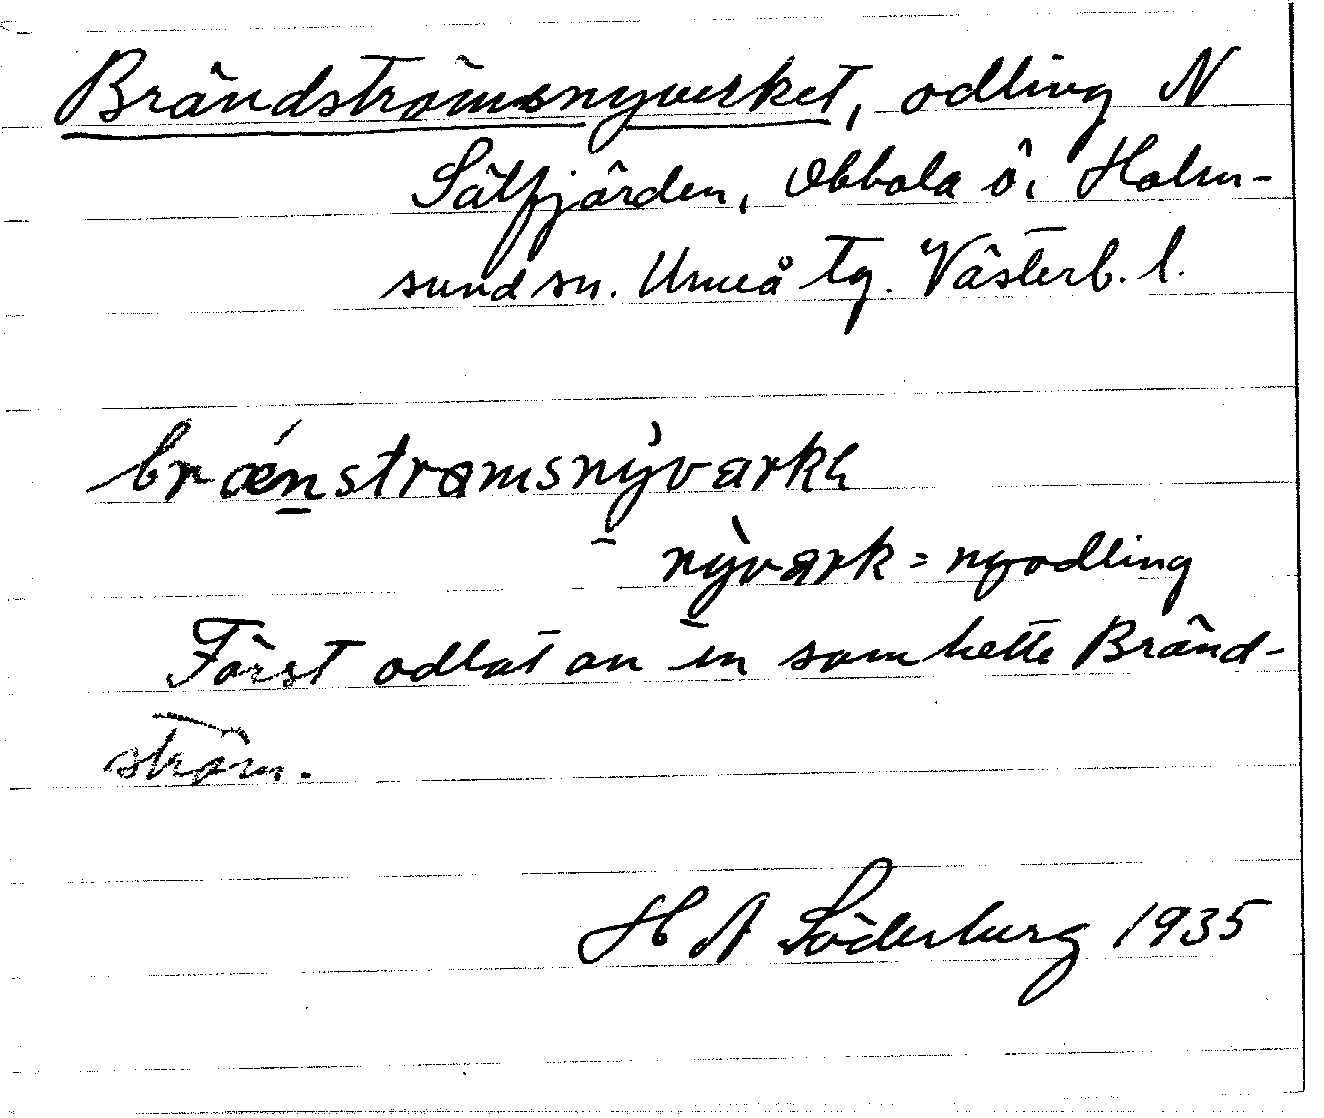 Brändströmsnyverket, odling N
Sälfjärden, Obbola ö, Holm-
sund sn. Umeå tg. Västerb. l.
brǽnstrømsnỳvärke
nỳvärk = nyodling
Först odlat av en som hette Bränd-
ström.
H A Söderberg 1935